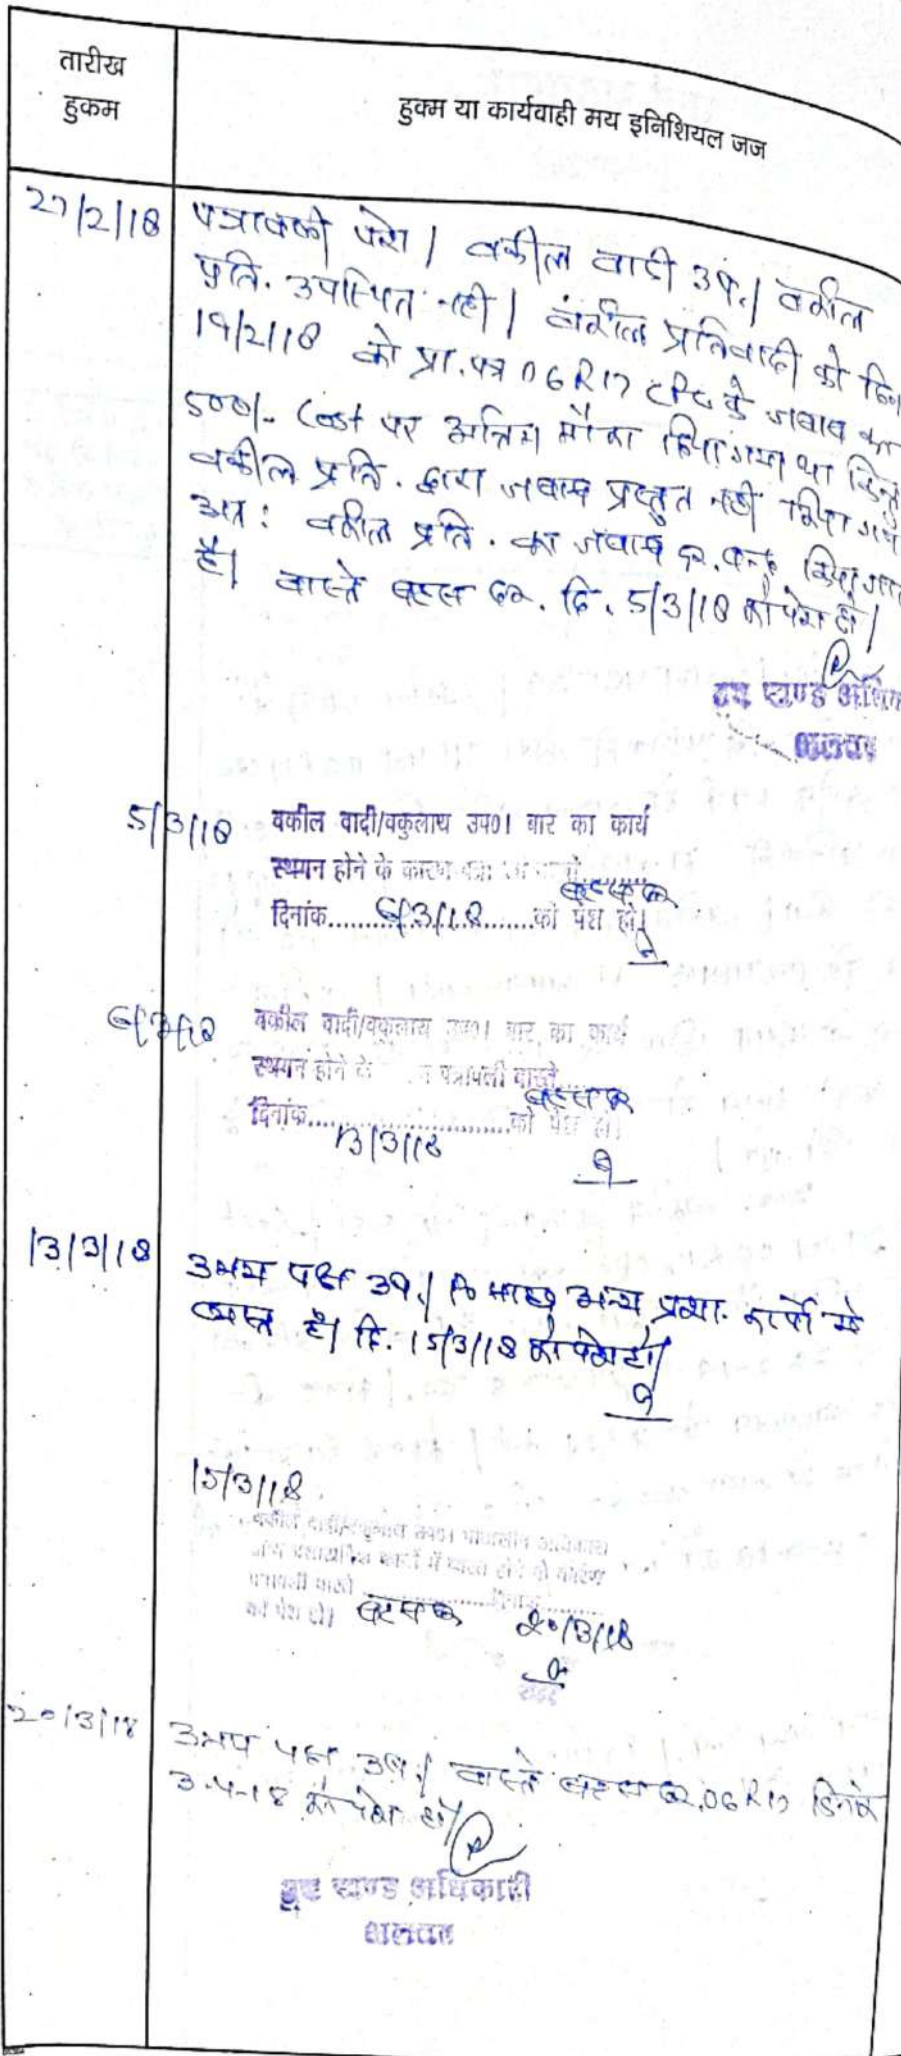 तारीख
हुकम
हुक्म या कार्यवाही मय इनिशियल जज
27/2/18
पत्रावली पेश। वकील वादी उप.। वकील
प्रति. उपस्थित नही। वकील प्रतिवादी को दिनांक
19/2/18 को प्रा. पत्र O6R17 CPC के जवाब का
500/- Cost पर अन्तिम मौका दिया गया था किन्तु
वकील प्रति. द्वारा जवाब प्रस्तुत नही किया गया
अतः वकील प्रति. का जवाब दर. बन्द किया जाता
है। वास्ते बहस दर. दि. 5/3/18 को पेश हो।
उप खण्ड अधिकारी
अलवर
5/3/18
वकील वादी/वकुलाय उप०। बार का कार्य
स्थगन होने के कारण
बहस दर
दिनांक.......6/3/18.......को पेश हो।
6/3/18
वकील वादी/वकुलाय उप०। बार का कार्य
स्थगन होने के पत्रावली वास्ते
बहस दर
दिनांक..............को पेश हो।
13/3/18
13/3/18
उभय पक्ष उप.। अन्य प्रशा. कार्यो मे
व्यस्त है। दि. 15/3/18 को पेश हो।
15/3/18
वकील वादी/वकुलाय उप०। पीठासीन अधिकारी
अन्य प्रशासनिक कार्यों में व्यस्त होने के कारण
पत्रावली वास्ते ............दिनांक............
को पेश हो। बहस दर 20/3/18
20/3/18
उभय पक्ष उप.। वास्ते बहस दर. O6R17 दिनांक
3-4-18 को पेश हो।
उप खण्ड अधिकारी
अलवर